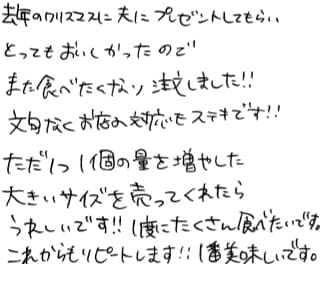 去年のクリスマスに夫にプレゼントしてもらい
とってもおいしかったので
また食べたくなり注文しました!!
文句なくお店の対応もステキです!!
ただ1つ1個の量を増やした
大きいサイズを売ってくれたら
うれしいです!!1度にたくさん食べたいです。
これからもリピートします!!1番美味しいです。